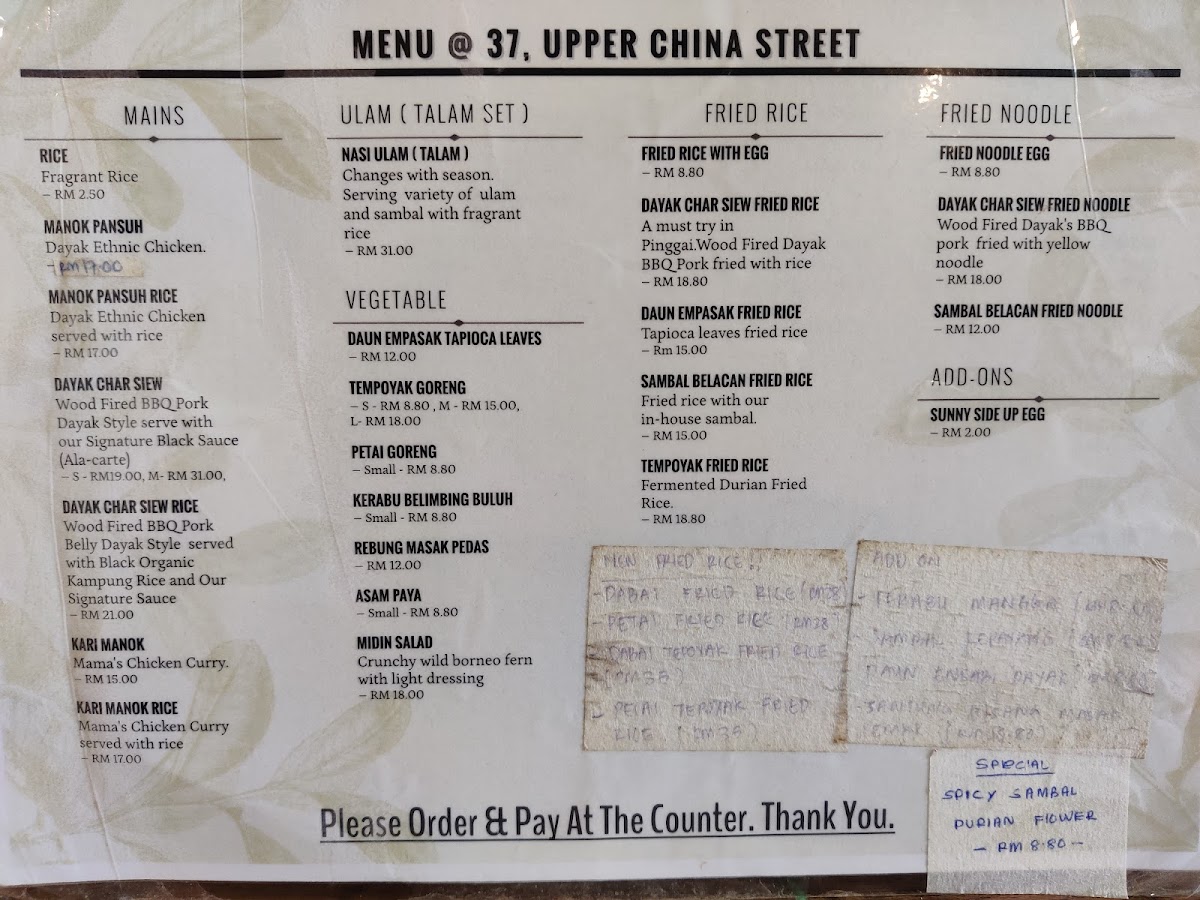 MENU @ 37, UPPER CHINA STREET
MAINS
RICE
Fragrant Rice
– RM 2.50
MANOK PANSUH
Dayak Ethnic Chicken.
– RM 17.00
MANOK PANSUH RICE
Dayak Ethnic Chicken
served with rice
– RM 17.00
DAYAK CHAR SIEW
Wood Fired BBQ Pork
Dayak Style serve with
our Signature Black Sauce
(Ala-carte)
– S - RM19.00, M- RM 31.00,
DAYAK CHAR SIEW RICE
Wood Fired BBQ Pork
Belly Dayak Style served
with Black Organic
Kampung Rice and Our
Signature Sauce
– RM 21.00
KARI MANOK
Mama's Chicken Curry.
– RM 15.00
KARI MANOK RICE
Mama's Chicken Curry
served with rice
– RM 17.00
ULAM ( TALAM SET )
NASI ULAM ( TALAM )
Changes with season.
Serving variety of ulam
and sambal with fragrant
rice
– RM 31.00
VEGETABLE
DAUN EMPASAK TAPIOCA LEAVES
– RM 12.00
TEMPOYAK GORENG
– S - RM 8.80 , M - RM 15.00,
L- RM 18.00
PETAI GORENG
– Small - RM 8.80
KERABU BELIMBING BULUH
– Small - RM 8.80
REBUNG MASAK PEDAS
– RM 12.00
ASAM PAYA
– Small - RM 8.80
MIDIN SALAD
Crunchy wild borneo fern
with light dressing
– RM 18.00
FRIED RICE
FRIED RICE WITH EGG
– RM 8.80
DAYAK CHAR SIEW FRIED RICE
A must try in
Pinggai.Wood Fired Dayak
BBQ Pork fried with rice
– RM 18.80
DAUN EMPASAK FRIED RICE
Tapioca leaves fried rice
– Rm 15.00
SAMBAL BELACAN FRIED RICE
Fried rice with our
in-house sambal.
– RM 15.00
TEMPOYAK FRIED RICE
Fermented Durian Fried
Rice.
– RM 18.80
FRIED NOODLE
FRIED NOODLE EGG
– RM 8.80
DAYAK CHAR SIEW FRIED NOODLE
Wood Fired Dayak's BBQ
pork fried with yellow
noodle
– RM 18.00
SAMBAL BELACAN FRIED NOODLE
– RM 12.00
ADD-ONS
SUNNY SIDE UP EGG
– RM 2.00
FRIED RICE !!
- DABAI FRIED RICE (RM28)
- PETAI FRIED RICE (RM28)
- DABAI FRIED RICE
(RM35)
- PETAI FRIED
RICE (RM35)
ADD ON
- MANGGA
SAMBAL
DAUN DAYAK
SPECIAL
SPICY SAMBAL
DURIAN FLOWER
- RM 8.80 -
Please Order & Pay At The Counter. Thank You.